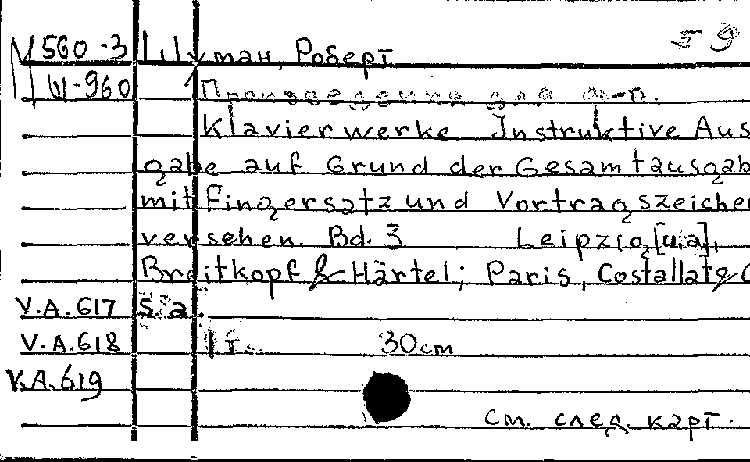 V 560-3 Шуман, Роберт 59
Ш-960 Произведения для ф-п.
Klavierwerke Instruktive Aus
gabe auf Grund der Gesamtausgab
mit Fingersatz und Vortragszeichen
versehen. Bd. 3 Leipzig [u.a],
Breitkopf & Härtel; Paris, Costallat &
V.A.617 S.a.
V.A.618 1 т. 30 cm
V.A.619
см. след. карт.